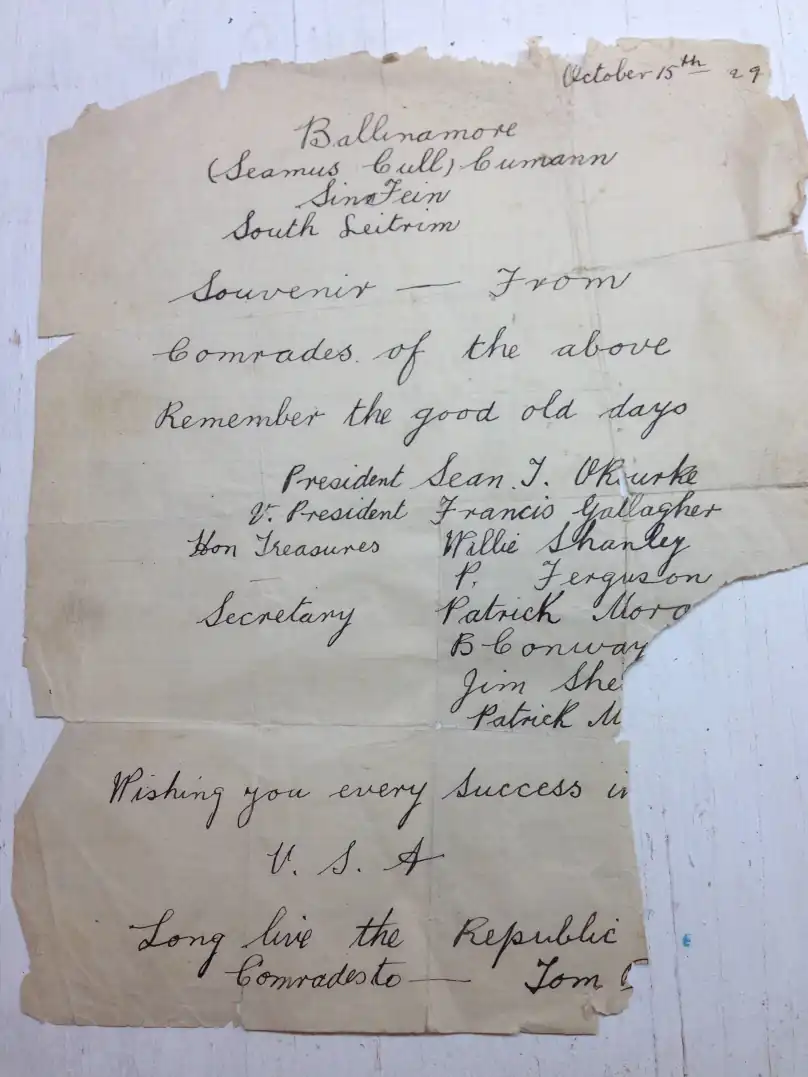 October 15th 29
Ballinamore
(Seamus Cull) Cumann
Sinn Fein
South Leitrim
Souvenir — From
Comrades of the above
Remember the good old days
President Sean T. ORourke
V. President Francis Gallagher
Hon Treasures Willie Shanley
P. Ferguson
Secretary Patrick Moro
B Conway
Jim She
Patrick M
Wishing you every success in
U. S. A
Long live the Republic
Comrades to — Tom